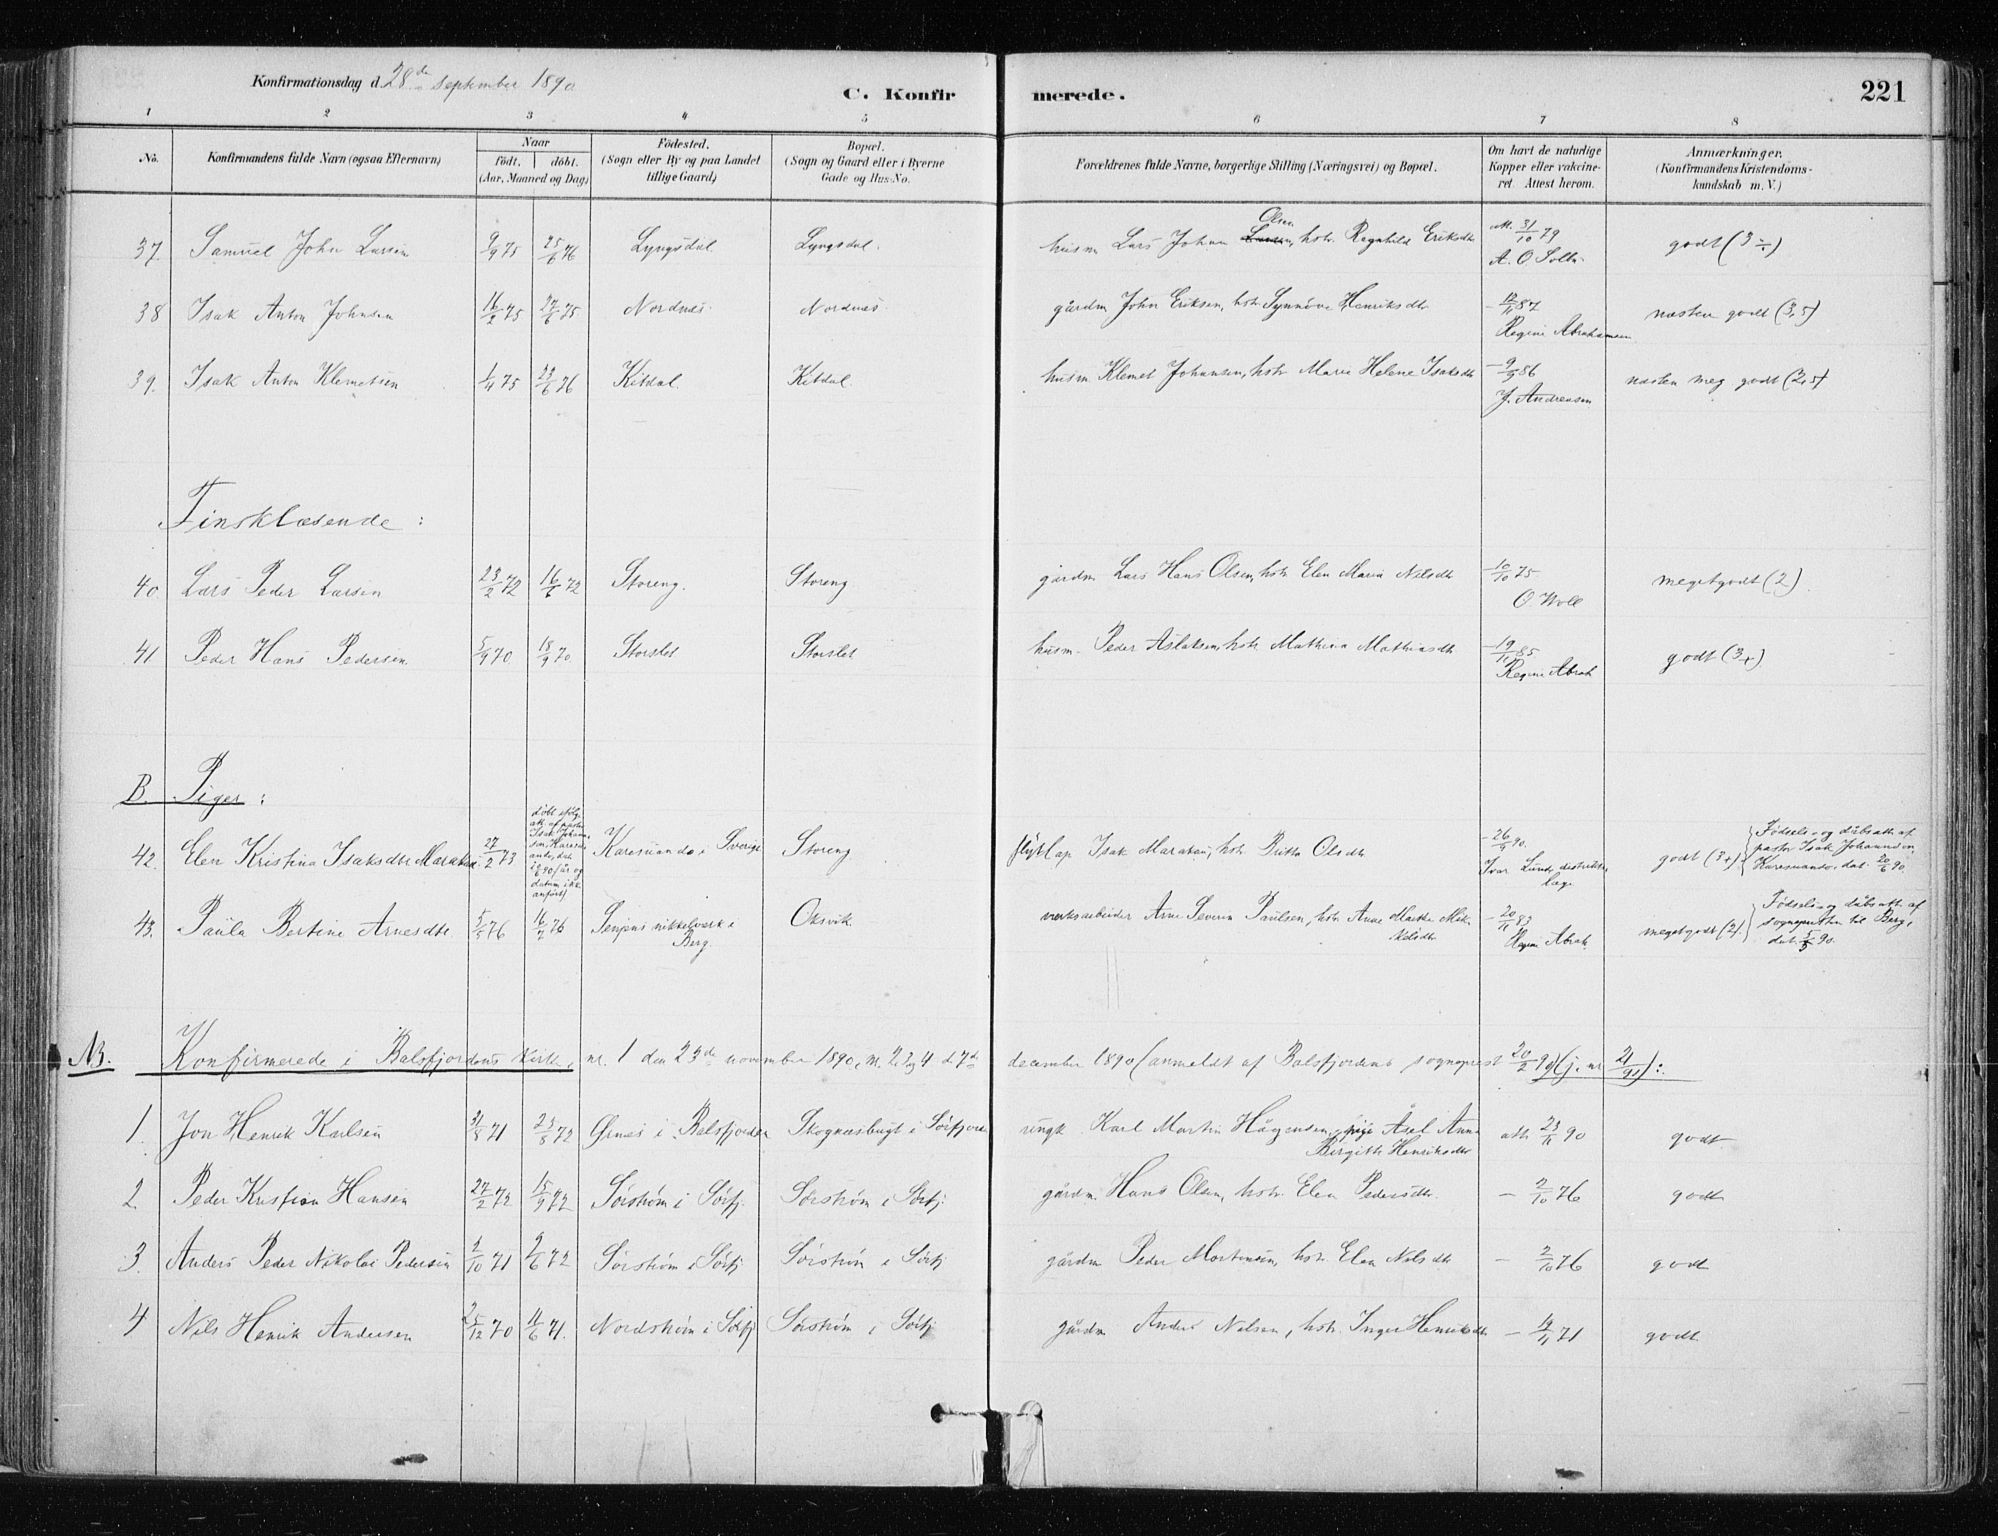 Konfirmationsdag d. 28de september 1890
C. Konfirmerede.
221
1 2 3 4 5 6 7 8
No.
Konfirmandens fulde Navn (ogsaa Efternavn)
Naar
födt. döbt.
(Aar, Maaned og Dag)
Födested.
(Sogn eller By og paa Landet
tillige Gaard)
Bopæl.
(Sogn og Gaard eller i Byerne
Gade og Hus-No.
Forældrenes fulde Navne, borgerlige Stilling (Næringsvei) og Bopæl.
Om havt de naturlige
Kopper eller vakcine-
ret. Attest herom.
Anmærkninger.
(Konfirmandens Kristendoms-
kundskab m. V.)
37. Samuel John Larsen 9/9 75 25/6 76 Lyngsdal Lyngsdal. husm Lars Johan Larsen Olsen, hstr. Regnhild Eriksdtr att. 31/10 79 A. O. Solb. godt (3÷)
38 Isak Anton Johnsen 16/2 75 27/6 75. Nordnes. Nordnes. gårdm John Eriksen, hstr Synnöve Henriksdtr - 12/11 87 Regine Abrahamsen næsten godt (3,5)
39. Isak Anton Klemetsen 1/11 75 23/6 76 Kitdal. Kitdal. husm Klemet Johansen, hstr Marie Helene Isaksdtr - 9/9 86 J. Andreasen næsten meg godt (2,5)
Finsklæsende:
40. Lars Peder Larsen 23/2 72 16/6 72 Storeng. Storeng gårdm Lars Hans Olsen, hstr Elen Maria Nilsdtr 10/10 75 O. Woll meget godt (2).
41 Peder Hans Pedersen 5/9 70 18/9 70 Storslet Storslet husm. Peder Aslaksen, hstr Mathina Mathiasdtr - 19/11 85 Regine Abrah godt (3+).
B. Piger:
42. Elen Kristina Isaksdtr Marakau 27/2 73 döbt ifölg. att. af pastor Isak Johannsen, Karesuando, dat. 20/6 90 (år og datum ikke anfört) Karesuando i Sverige Storeng flytlap Isak Marakau, hstr. Britta Olsdtr - 26/9 90. Ivar Lund, distriktslæge godt (3+) Födsels- og dåbsatt. af pastor Isak Johannsen, Karesuando, dat. 20/6 90.
43. Paula Bertine Arnesdtr. 5/5 76 16/7 76 Senjens nikkelverk i Berg. Oksvik verksarbeider Arne Severin Paulsen, hstr Ane Marthe Mikkelsdtr - 20/11 83 Regine Abrah. meget godt (2). Födsels- og dåbsatt. af sognepresten til Berg, dat. 5/5 90.
NB. Konfirmerede i Balsfjordens kirke, nr. 1 den 23de november 1890, nr. 2, 3 og 4 d 7de december 1890 (anmeldt af Balsfjordens sogneprest 20/2 91 (j. nr 21/91):
1. Jon Henrik Karlsen 31/8 71 25/8 72 Ørnes i Balsfjorden Skognæsbugt i Sörfjorden ungk Karl Martin Hågensen, pige Asel Anna Birgitte Henriksdtr att. 23/11 90 godt
2. Peder Kristian Hansen 27/2 72 15/9 72 Sörström i Sörfj. Sörström i Sörfj gårdm Hans Olsen, hstr. Elen Pedersdtr. - 2/10 76 godt
3. Anders Peder Nikolai Pedersen 2/10 71 2/6 72 Sörström i Sörfj Sörström i Sörfj gårdm Peder Mortensen, hstr. Elen Nilsdtr - 2/10 76 godt
4 Nils Henrik Andersen 25/12 70 11/6 71. Nordström i Sörfj Sörström i Sörfj gårdm Anders Nilsen, hstr. Inger Henriksdtr - 14/11 71 godt